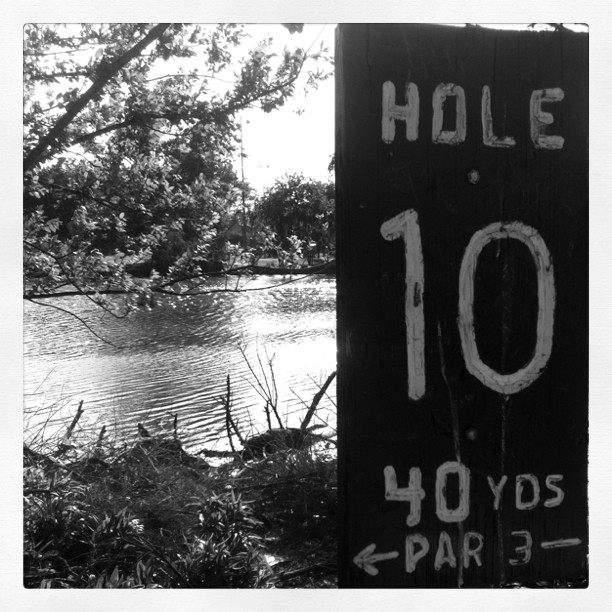 HOLE
10
40 YDS
←PAR 3—